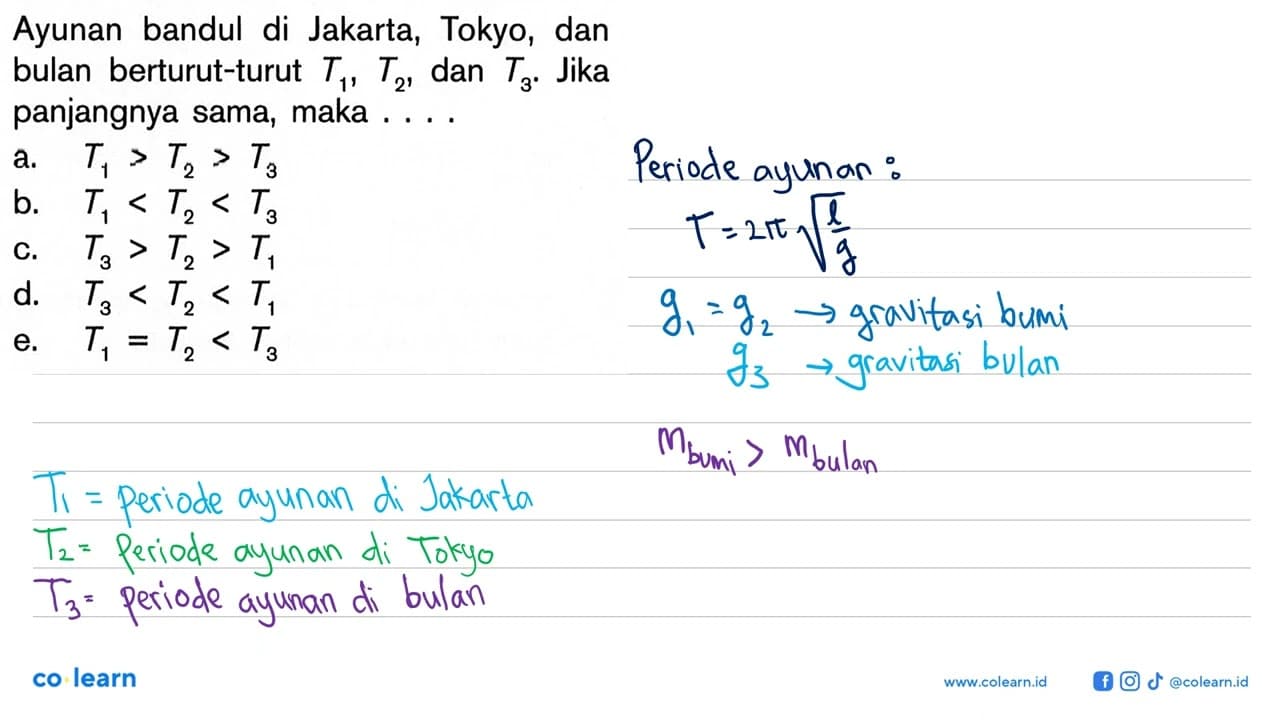 Ayunan bandul di Jakarta, Tokyo, dan
bulan berturut-turut T₁, T₂, dan T₃. Jika
panjangnya sama, maka . . . .
a. T₁ > T₂ > T₃
b. T₁ < T₂ < T₃
c. T₃ > T₂ > T₁
d. T₃ < T₂ < T₁
e. T₁ = T₂ < T₃
Periode ayunan :
T = 2π √(l/g)
g₁ = g₂ → gravitasi bumi
g₃ → gravitasi bulan
m bumi > m bulan
T₁ = periode ayunan di Jakarta
T₂ = Periode ayunan di Tokyo
T₃ = periode ayunan di bulan
co learn
www.colearn.id
@colearn.id